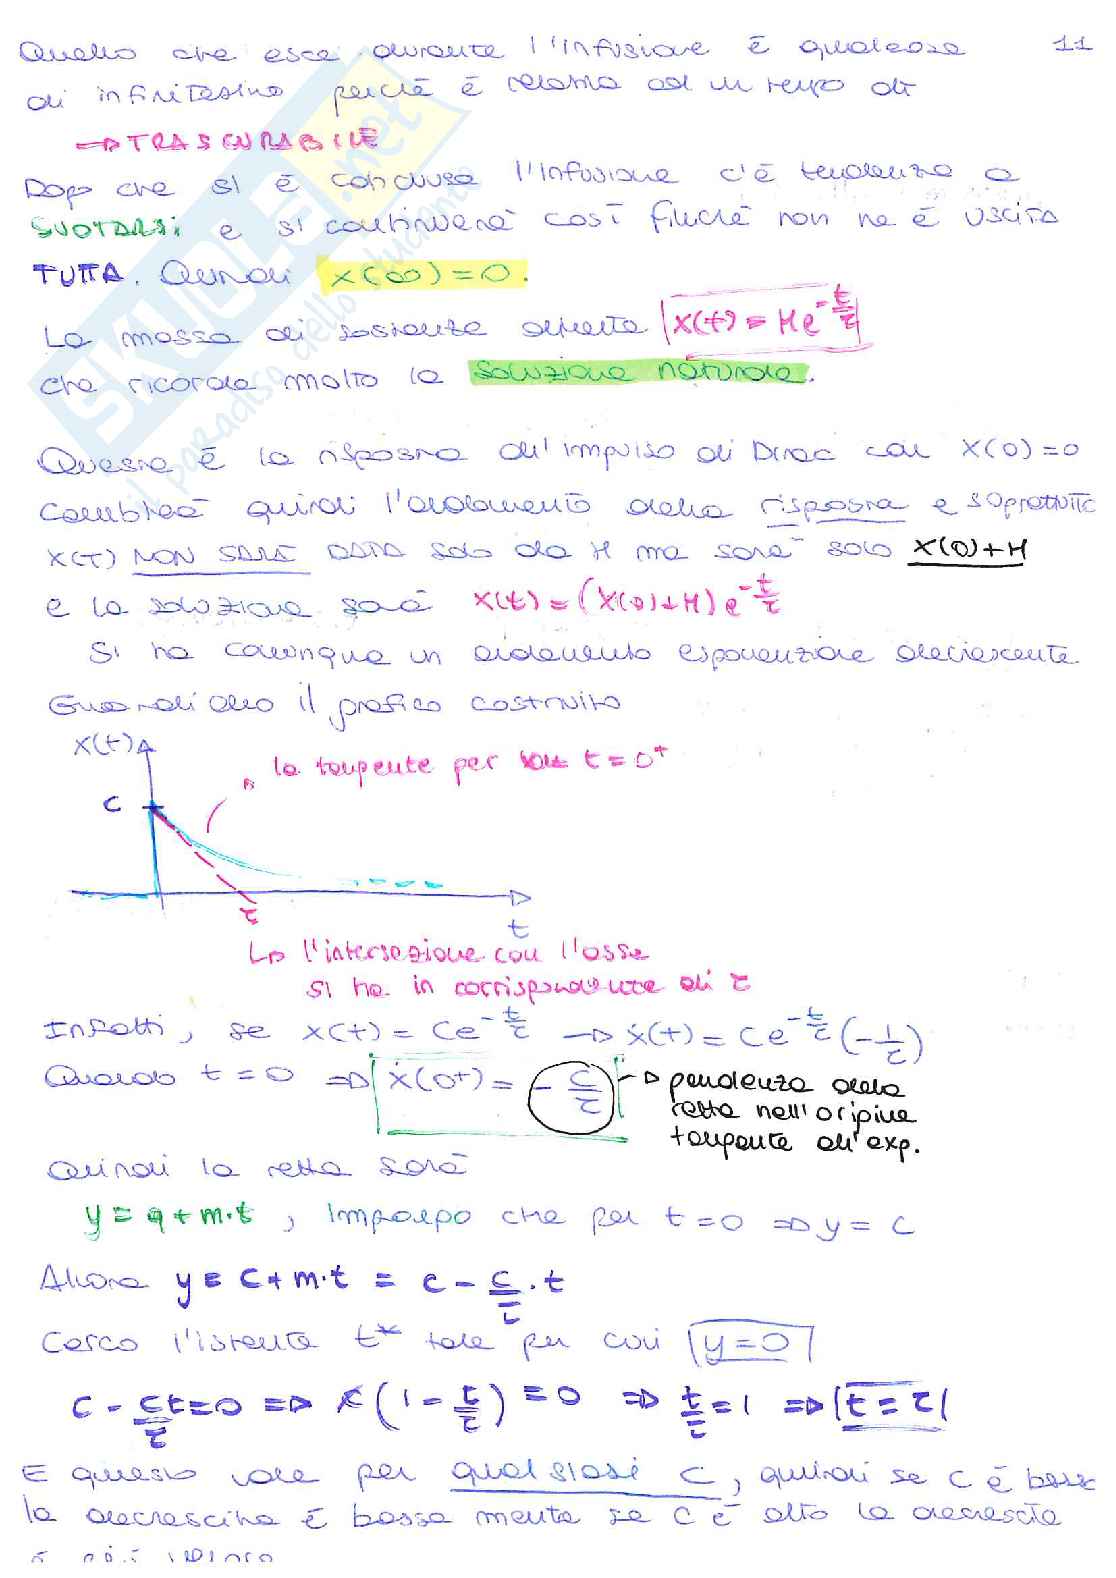 Quello che esce durante l'infusione è qualcosa 11
di infinitesimo perché è relativa ad un tempo dt
⇒ TRASCURABILE
Dopo che si è conclusa l'infusione c'è tendenza a
SVOTARSI e si continuerà così finché non ne è uscita
TUTTA. Quindi x(∞)=0.
La massa di sostanza diretta x(t) = He^(-t/τ)
che ricorda molto la soluzione naturale.
Questa è la risposta all'impulso di Dirac con x(0)=0
Cambierà quindi l'andamento della risposta e soprattutto
x(τ) NON SARÀ DATA solo da H ma sarà solo x(0)+H
e la soluzione sarà x(t) = (x(0)+H) e^(-t/τ)
Si ha comunque un andamento esponenziale decrescente.
Guardiamo il grafico costruito
x(t)
la tangente per t = 0⁺
C
τ
t
↳ l'intersezione con l'asse
si ha in corrispondenza di τ
Infatti, se x(t) = Ce^(-t/τ) → ẋ(t) = Ce^(-t/τ) (-1/τ)
Quando t = 0 ⇒ ẋ(0⁺) = - C/τ → pendenza della
retta nell'origine
tangente all'exp.
Quindi la retta sarà
y = q + m·t , impongo che per t = 0 ⇒ y = C
Allora y = C + m·t = C - C/τ · t
Cerco l'istante t* tale per cui y=0
C - C/τ t = 0 ⇒ C(1 - t/τ) = 0 ⇒ t/τ = 1 ⇒ t = τ
E questo vale per qualsiasi C, quindi se C è basso
la decrescita è bassa mentre se C è alto la decrescita
è più